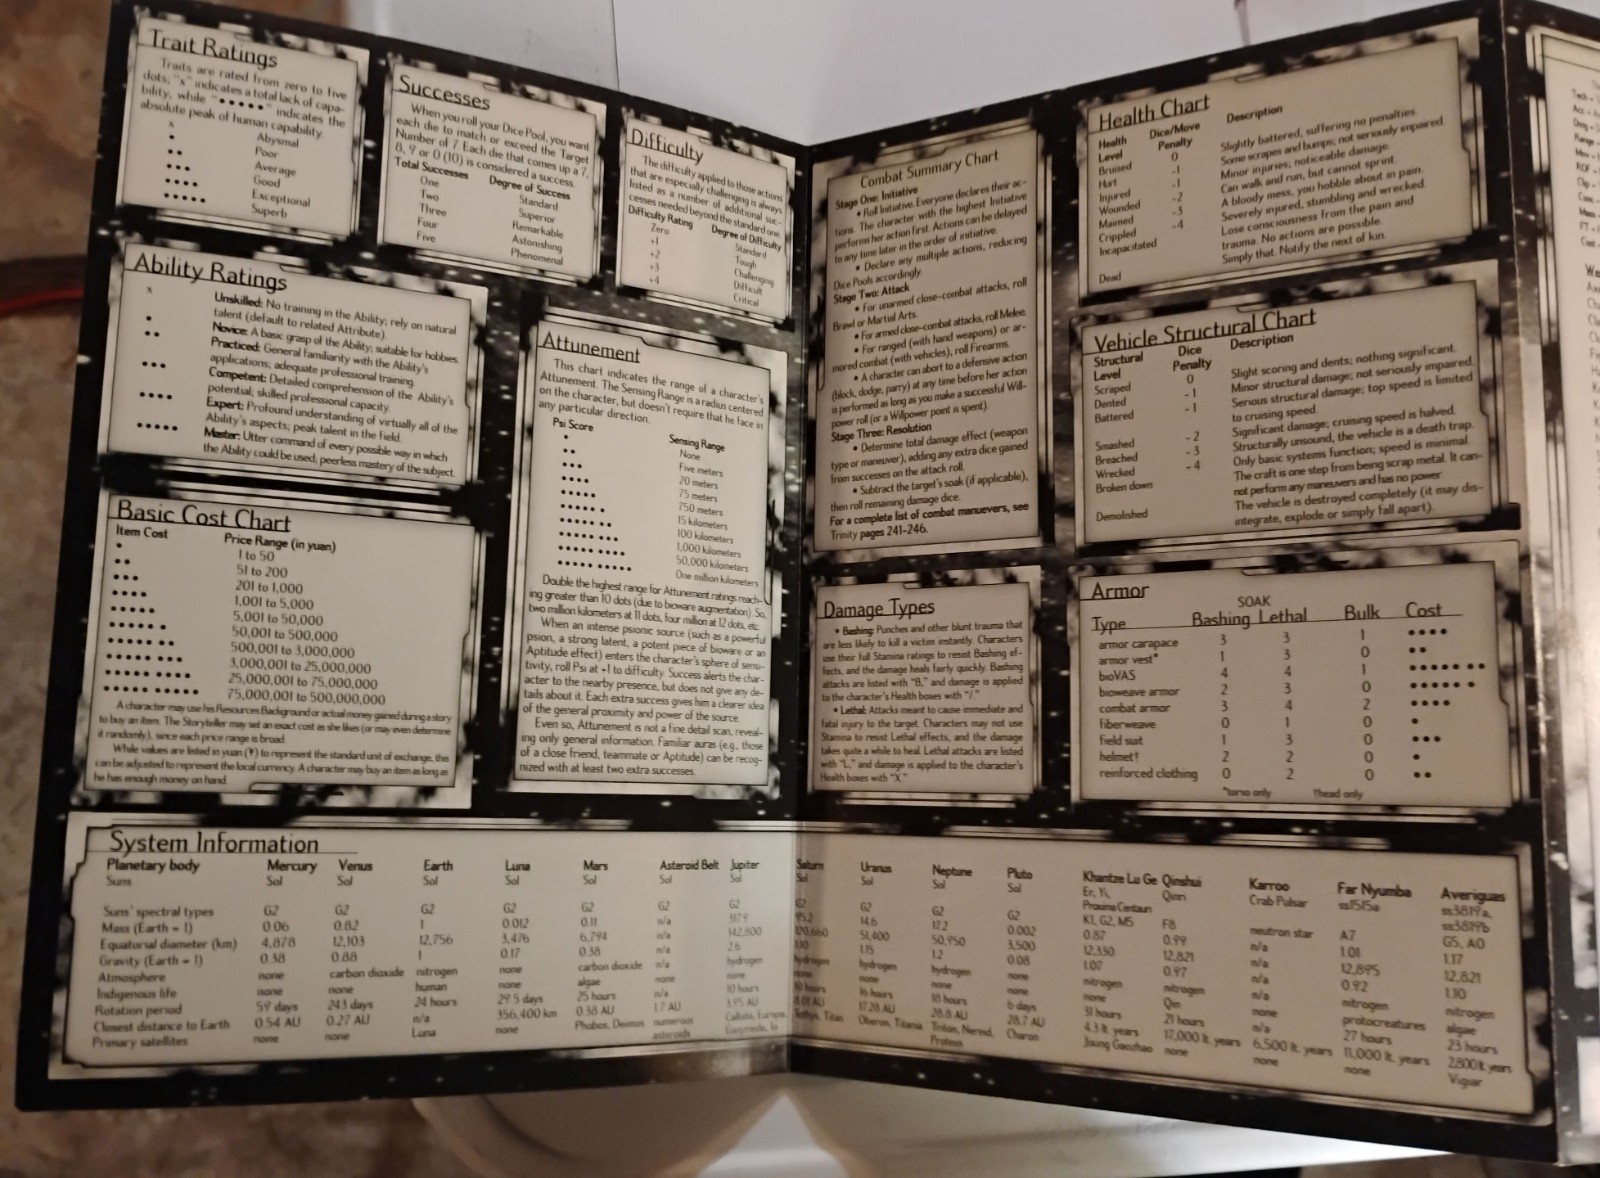 Trait Ratings
Traits are rated from zero to five
dots; "x" indicates a total lack of capa-
bility, while "•••••" indicates the
absolute peak of human capability.
x Abysmal
• Poor
•• Average
••• Good
•••• Exceptional
••••• Superb
Successes
When you roll your Dice Pool, you want
each die to match or exceed the Target
Number of 7. Each die that comes up a 7,
8, 9 or 0 (10) is considered a success.
Total Successes Degree of Success
One Standard
Two Superior
Three Remarkable
Four Astonishing
Five Phenomenal
Difficulty
The difficulty applied to those actions
that are especially challenging is always
listed as a number of additional suc-
cesses needed beyond the standard one.
Difficulty Rating Degree of Difficulty
Zero Standard
+1 Tough
+2 Challenging
+3 Difficult
+4 Critical
Ability Ratings
x Unskilled: No training in the Ability; rely on natural
talent (default to related Attribute).
• Novice: A basic grasp of the Ability; suitable for hobbies.
•• Practiced: General familiarity with the Ability's
applications; adequate professional training.
••• Competent: Detailed comprehension of the Ability's
potential; skilled professional capacity.
•••• Expert: Profound understanding of virtually all of the
Ability's aspects; peak talent in the field.
••••• Master: Utter command of every possible way in which
the Ability could be used; peerless mastery of the subject.
Attunement
This chart indicates the range of a character's
Attunement. The Sensing Range is a radius centered
on the character, but doesn't require that he face in
any particular direction.
Psi Score Sensing Range
None
• Five meters
•• 20 meters
••• 75 meters
•••• 750 meters
••••• 15 kilometers
••••• • 100 kilometers
••••• •• 1,000 kilometers
••••• ••• 50,000 kilometers
••••• ••••• One million kilometers
Double the highest range for Attunement ratings reach-
ing greater than 10 dots (due to bioware augmentation). So,
two million kilometers at 11 dots, four million at 12 dots, etc.
When an intense psionic source (such as a powerful
psion, a strong latent, a potent piece of bioware or an
Aptitude effect) enters the character's sphere of sensi-
tivity, roll Psi at +1 to difficulty. Success alerts the char-
acter to the nearby presence, but does not give any de-
tails about it. Each extra success gives him a clearer idea
of the general proximity and power of the source.
Even so, Attunement is not a fine detail scan, reveal-
ing only general information. Familiar auras (e.g., those
of a close friend, teammate or Aptitude) can be recog-
nized with at least two extra successes.
Basic Cost Chart
Item Cost Price Range (in yuan)
• 1 to 50
•• 51 to 200
••• 201 to 1,000
•••• 1,001 to 5,000
••••• 5,001 to 50,000
••••• • 50,001 to 500,000
••••• •• 500,001 to 3,000,000
••••• ••• 3,000,001 to 25,000,000
••••• •••• 25,000,001 to 75,000,000
••••• ••••• 75,000,001 to 500,000,000
A character may use his Resources Background or actual money gained during a story
to buy an item. The Storyteller may set an exact cost as she likes (or may even determine
it randomly), since each price range is broad.
While values are listed in yuan (¥) to represent the standard unit of exchange, this
can be adjusted to represent the local currency. A character may buy an item as long as
he has enough money on hand.
Combat Summary Chart
Stage One: Initiative
• Roll Initiative. Everyone declares their ac-
tions. The character with the highest Initiative
performs her action first. Actions can be delayed
to any time later in the order of initiative.
• Declare any multiple actions, reducing
Dice Pools accordingly.
Stage Two: Attack
• For unarmed close-combat attacks, roll
Brawl or Martial Arts.
• For armed close-combat attacks, roll Melee.
• For ranged (with hand weapons) or ar-
mored combat (with vehicles), roll Firearms.
• A character can abort to a defensive action
(block, dodge, parry) at any time before her action
is performed as long as you make a successful Will-
power roll (or a Willpower point is spent).
Stage Three: Resolution
• Determine total damage effect (weapon
type or maneuver), adding any extra dice gained
from successes on the attack roll.
• Subtract the target's soak (if applicable),
then roll remaining damage dice.
For a complete list of combat manuevers, see
Trinity pages 241-246.
Health Chart
Health Level Dice/Move Penalty Description
Bruised 0 Slightly battered, suffering no penalties.
Hurt -1 Some scrapes and bumps; not seriously impaired.
Injured -1 Minor injuries; noticeable damage.
Wounded -2 Can walk and run, but cannot sprint.
Maimed -3 A bloody mess, you hobble about in pain.
Crippled -4 Severely injured, stumbling and wrecked.
Incapacitated Lose consciousness from the pain and
trauma. No actions are possible.
Dead Simply that. Notify the next of kin.
Vehicle Structural Chart
Structural Level Dice Penalty Description
Scraped 0 Slight scoring and dents; nothing significant.
Dented -1 Minor structural damage; not seriously impaired.
Battered -1 Serious structural damage; top speed is limited
to cruising speed.
Smashed -2 Significant damage; cruising speed is halved.
Breached -3 Structurally unsound, the vehicle is a death trap.
Wrecked -4 Only basic systems function; speed is minimal.
Broken down The craft is one step from being scrap metal. It can-
not perform any maneuvers and has no power.
Demolished The vehicle is destroyed completely (it may dis-
integrate, explode or simply fall apart).
Damage Types
• Bashing: Punches and other blunt trauma that
are less likely to kill a victim instantly. Characters
use their full Stamina ratings to resist Bashing ef-
fects, and the damage heals fairly quickly. Bashing
attacks are listed with "B," and damage is applied
to the character's Health boxes with "/."
• Lethal: Attacks meant to cause immediate and
fatal injury to the target. Characters may not use
Stamina to resist Lethal effects, and the damage
takes quite a while to heal. Lethal attacks are listed
with "L," and damage is applied to the character's
Health boxes with "X."
Armor
SOAK
Type Bashing Lethal Bulk Cost
armor carapace 3 3 1 ••••
armor vest* 1 3 0 ••
bioVAS 4 4 1 ••••• ••
bioweave armor 2 3 0 ••••• •
combat armor 3 4 2 ••••
fiberweave 0 1 0 •
field suit 1 3 0 •••
helmet† 2 2 0 •
reinforced clothing 0 2 0 ••
*torso only †head only
System Information
Planetary body Mercury Venus Earth Luna Mars Asteroid Belt Jupiter Saturn Uranus Neptune Pluto Khantze Lu Ge Qinshui Karroo Far Nyumba Averiguas
Suns Sol Sol Sol Sol Sol Sol Sol Sol Sol Sol Sol Er, Yi, Proxima Centauri Qinri Crab Pulsar ss1515a ss3819a, ss3819b
Suns' spectral types G2 G2 G2 G2 G2 G2 G2 G2 G2 G2 G2 K1, G2, M5 F8 neutron star A7 G5, A0
Mass (Earth = 1) 0.06 0.82 1 0.012 0.11 n/a 317.9 95.2 14.6 17.2 0.002 0.87 0.99 n/a 1.01 1.17
Equatorial diameter (km) 4,878 12,103 12,756 3,476 6,794 n/a 142,800 120,660 51,400 50,950 3,500 12,330 12,821 n/a 12,895 12,821
Gravity (Earth = 1) 0.38 0.88 1 0.17 0.38 n/a 2.6 1.15 1.2 0.08 1.07 0.97 n/a 0.92 1.10
Atmosphere none carbon dioxide nitrogen none carbon dioxide n/a hydrogen hydrogen hydrogen hydrogen none nitrogen nitrogen n/a nitrogen nitrogen
Indigenous life none none human none algae none none none none none none none Qin n/a protocreatures algae
Rotation period 59 days 243 days 24 hours 29.5 days 25 hours n/a 10 hours 10 hours 16 hours 18 hours 6 days 31 hours 21 hours n/a 27 hours 23 hours
Closest distance to Earth 0.54 AU 0.27 AU n/a 356,400 km 0.38 AU 1.7 AU 3.95 AU 8.01 AU 17.28 AU 28.8 AU 28.7 AU 4.3 lt. years 17,000 lt. years 6,500 lt. years 11,000 lt. years 2,800 lt. years
Primary satellites none none Luna none Phobos, Deimos numerous asteroids Callisto, Europa, Ganymede, Io Tethys, Titan Oberon, Titania Triton, Nereid, Proteus Charon none none none